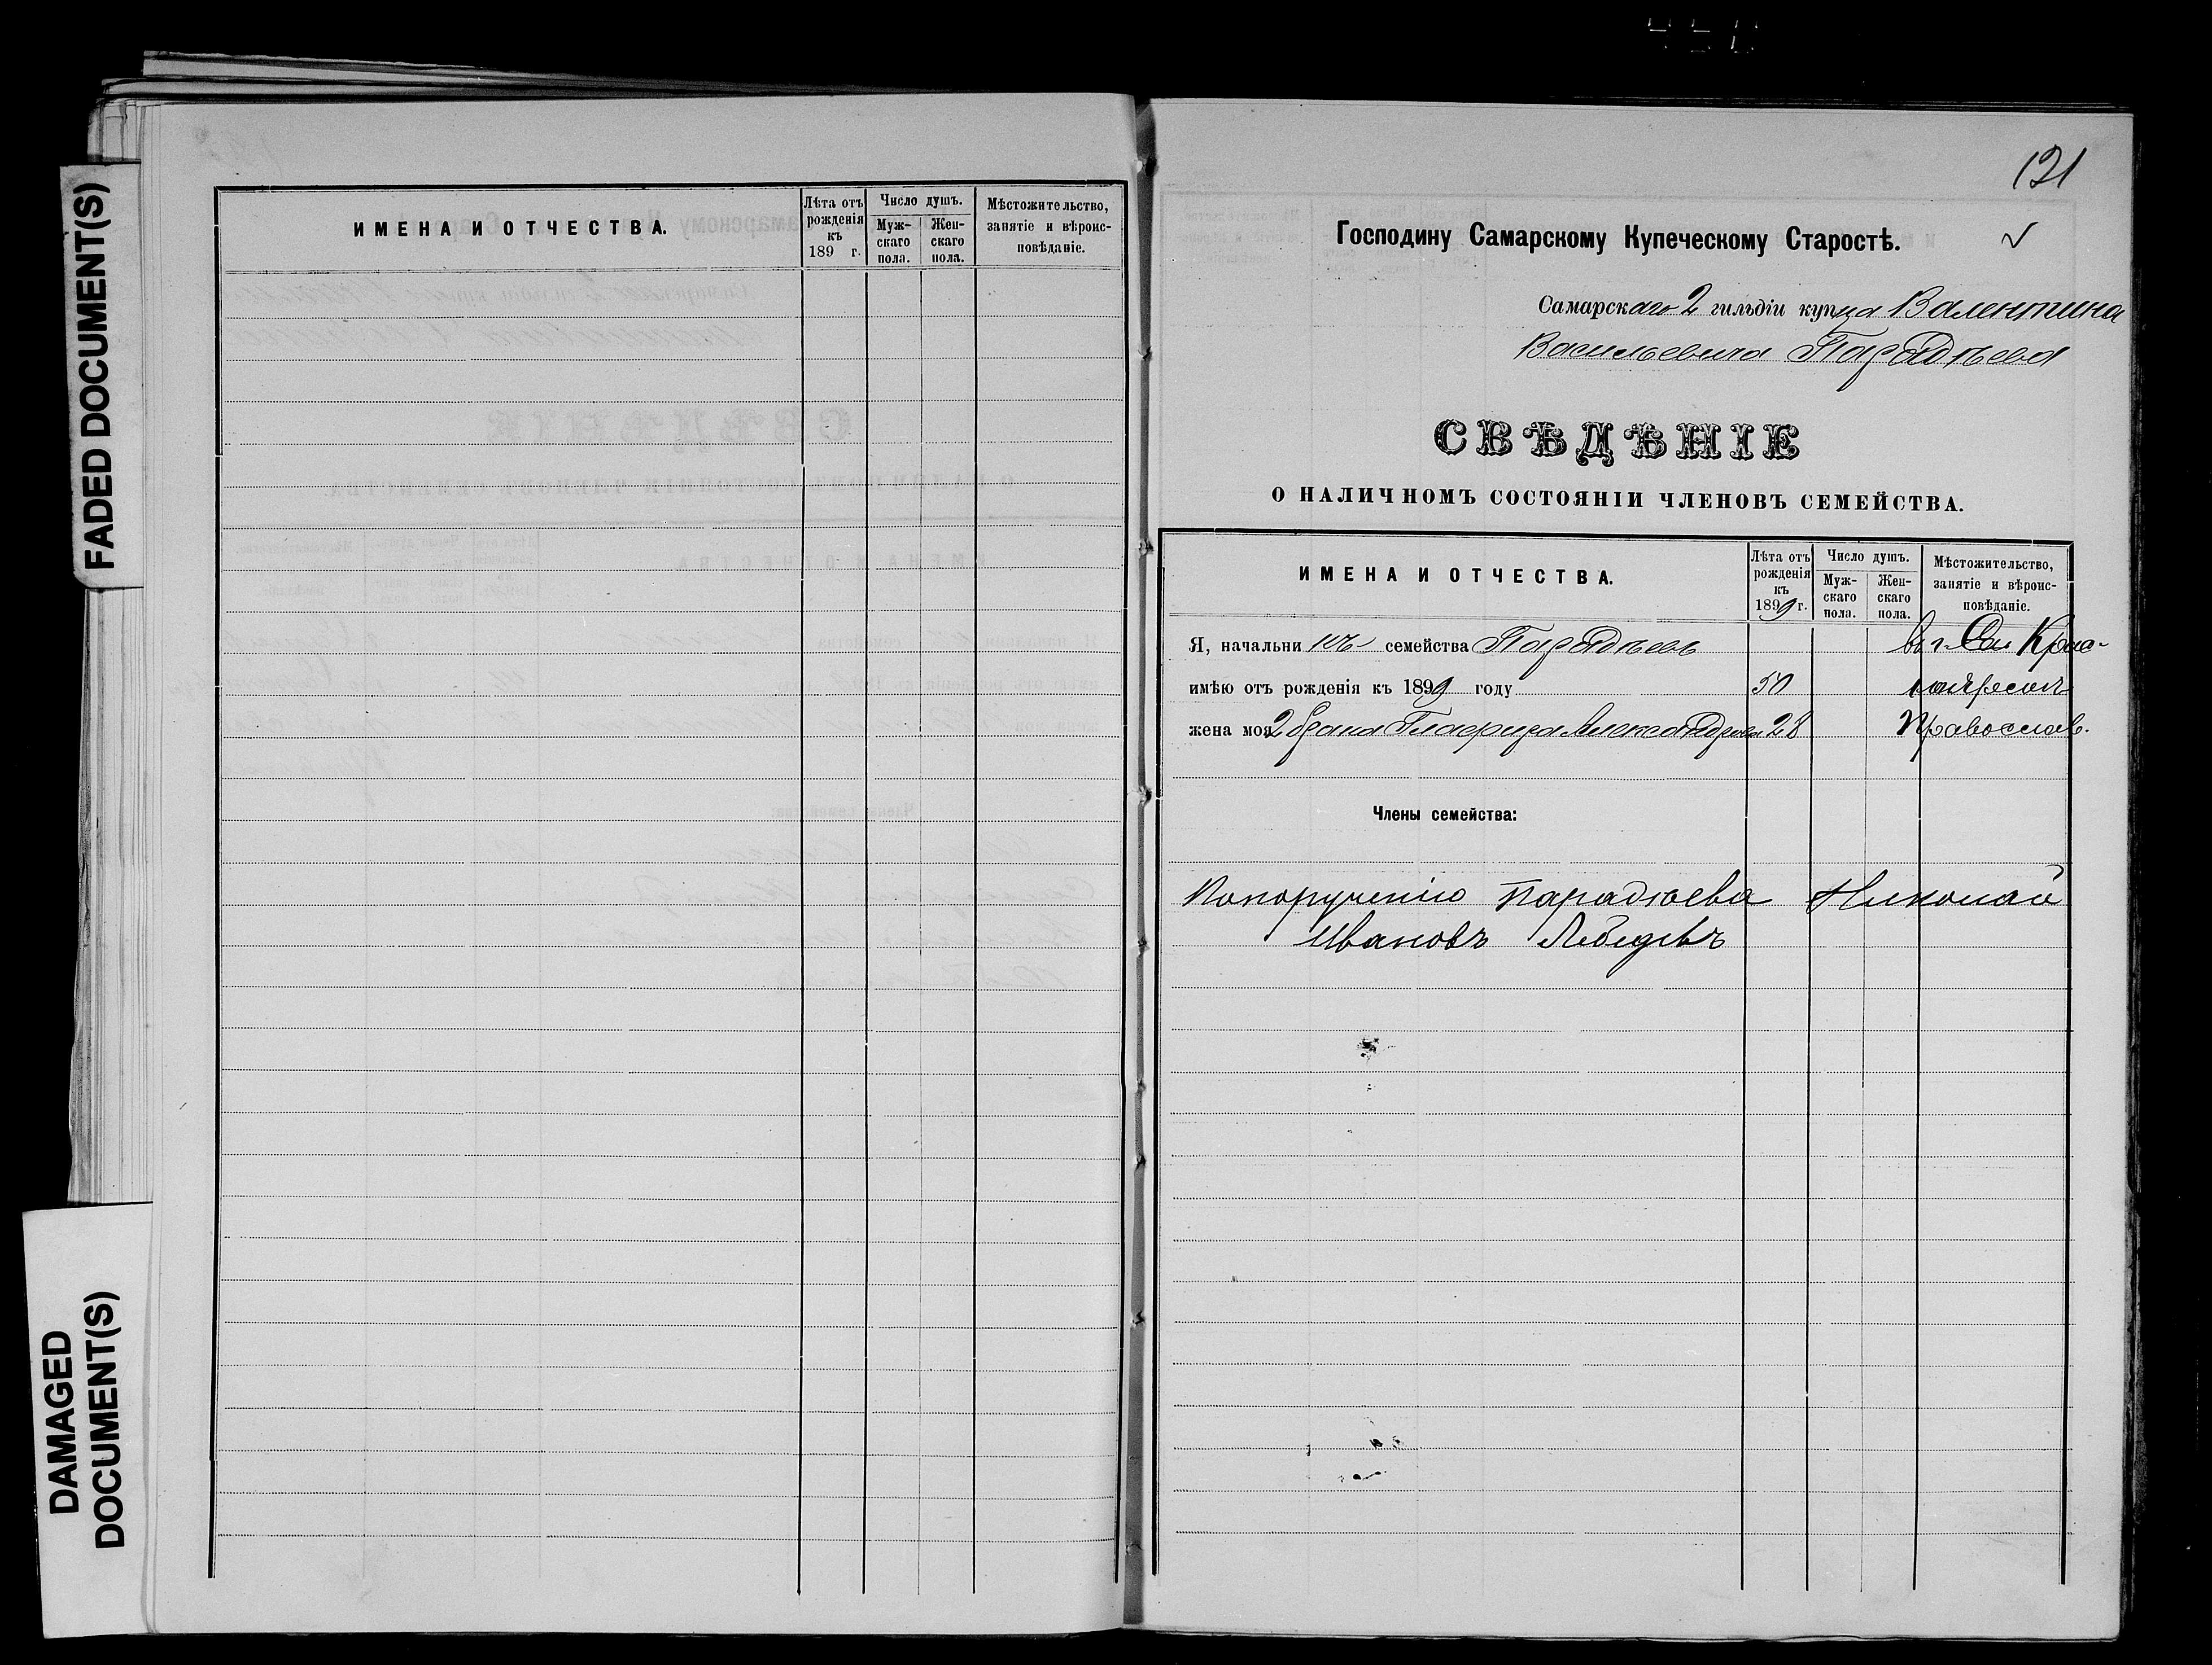 FADED DOCUMENT(S)
DAMAGED
DOCUMENT(S)
ИМЕНА И ОТЧЕСТВА.
Лѣта отъ
рожденія
къ
189 г.
Число душъ.
Муж-
скаго
пола.
Жен-
скаго
пола.
Мѣстожительство,
занятіе и вѣроис-
повѣданіе.
121
Господину Самарскому Купеческому Старостѣ.
Самарскаго 2 гильдіи купца Валентина
Васильевича Парадѣева
СВѢДѢНІЕ
О НАЛИЧНОМЪ СОСТОЯНІИ ЧЛЕНОВЪ СЕМЕЙСТВА.
ИМЕНА И ОТЧЕСТВА.
Лѣта отъ
рожденія
къ
1899 г.
Число душъ.
Муж-
скаго
пола.
Жен-
скаго
пола.
Мѣстожительство,
занятіе и вѣроис-
повѣданіе.
Я, начальникъ семейства Парадѣевъ въ г.
имѣю отъ рожденія къ 1899 году 50
жена моя 2 брана Глафира Александрова 28 Православ.
Члены семейства:
По порученію Парадѣева Николай
Ивановъ Лебедевъ